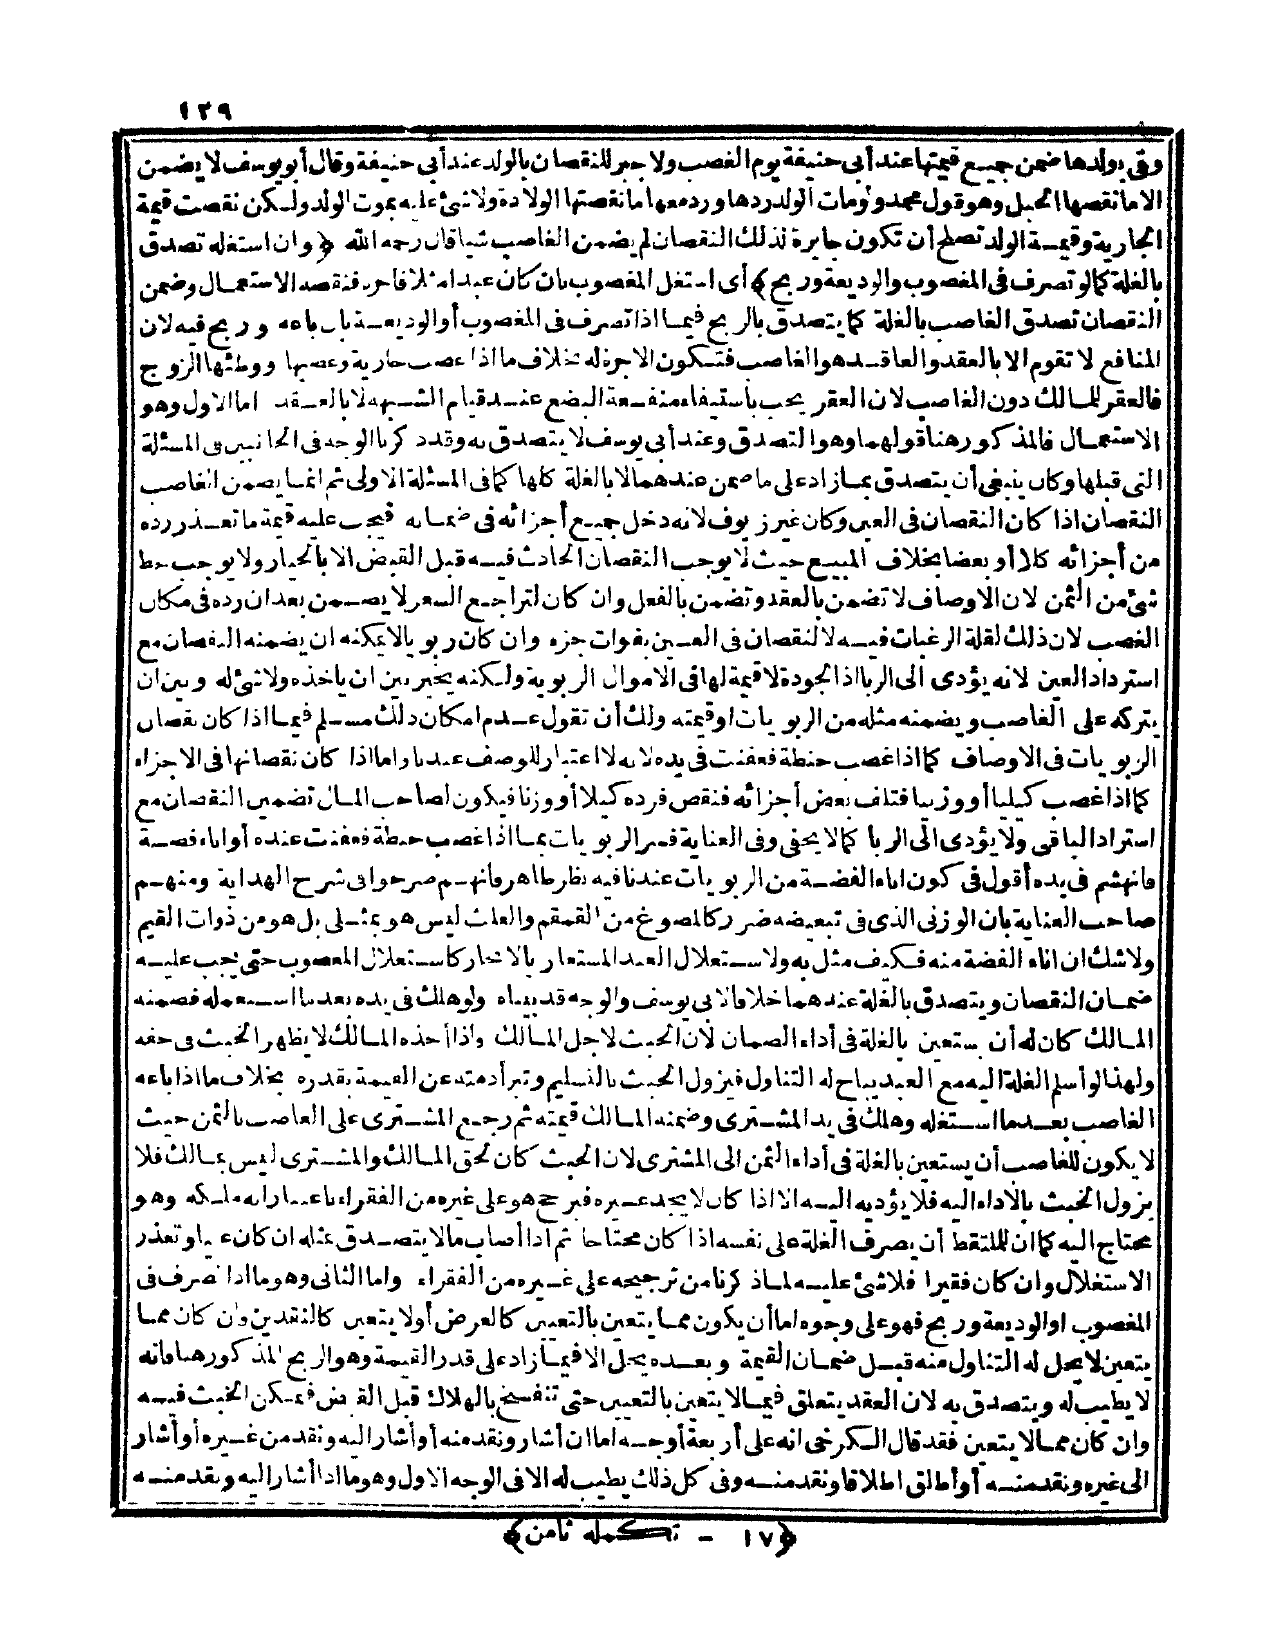 ١٢٩
وفى بولدها ضمن جميع قيمتها عند أبى حنيفة يوم الغصب ولا جبر للنقصان بالولد عند أبى حنيفة وقال أبو يوسف لا يضمن
الا ما نقصها الحبل وهو قول محمد ولو مات الولد ردها ورد معها ما نقصتها الولادة ولا شئ عليه بموت الولد ولكن نقصت قيمة
الجارية وقيمة الولد تصلح أن تكون جابرة لذلك النقصان لم يضمن الغاصب شيأ قال رحمه الله ﴿وان استغله تصدق
بالغلة كما لو تصرف فى المغصوب والوديعة وربح﴾ أى استغل المغصوب بان كان عبدا مثلا فاجره فنقصه الاستعمال وضمن
النقصان تصدق الغاصب بالغلة كما يتصدق بالربح فيما اذا تصرف فى المغصوب أو الوديعة بان باعه وربح فيه لان
المنافع لا تقوم الا بالعقد والعاقد هو الغاصب فتكون الاجرة له بخلاف ما اذا غصب جارية وغصبها ووطئها الزوج
فالعقر للمالك دون الغاصب لان العقر يجب باستيفاء منفعة البضع عند قيام الشبهة لا بالعقد اما الاول وهو
الاستعمال فالمذكور هنا قولهما وهو التصدق وعند أبى يوسف لا يتصدق به وقد ذكرنا الوجه فى الجانبين فى المسئلة
التى قبلها وكان ينبغى أن يتصدق بما زاد على ما ضمن عندهما لا بالغلة كلها كما فى المسئلة الاولى ثم انما يضمن الغاصب
النقصان اذا كان النقصان فى العين وكان غير ربوى لانه دخل جميع أجزائه فى ضمانه فيجب عليه قيمة ما تعذر رده
من أجزائه كلا أو بعضا بخلاف المبيع حيث لا يوجب النقصان الحادث فيه قبل القبض الا بالخيار ولا يوجب حط
شئ من الثمن لان الاوصاف لا تضمن بالعقد وتضمن بالفعل وان كان لتراجع السعر لا يضمن بعد ان رده فى مكان
الغصب لان ذلك لقلة الرغبات فيه لا لنقصان فى العين بفوات جزء وان كان ربويا لا يمكنه ان يضمنه النقصان مع
استرداد العين لانه يؤدى الى الربا اذ الجودة لا قيمة لها فى الاموال الربوية ولكنه يخير بين ان ياخذه ولا شئ له وبين ان
يتركه على الغاصب ويضمنه مثله من الربويات او قيمته ولك أن تقول عدم امكان ذلك مسلم فيما اذا كان نقصان
الربويات فى الاوصاف كما اذا غصب حنطة فعفنت فى يده لانه لا اعتبار للوصف عندنا واما اذا كان نقصانها فى الاجزاء
كما اذا غصب كيليا أو وزنيا فتلف بعض أجزائه فنقص فرده كيلا أو وزنا فيكون لصاحب المال تضمين النقصان مع
استرداد الباقى ولا يؤدى الى الربا كما لا يخفى وفى العناية فسر الربويات بما اذا غصب حنطة فعفنت عنده أو اناء فضة
فانهشم فى يده أقول فى كون اناء الفضة من الربويات عندنا فيه نظر ظاهر فانهم صرحوا فى شرح الهداية ومنهم
صاحب العناية بان الوزنى الذى فى تبعيضه ضرر كالمصوغ من القمقم والطشت ليس هو بمثلى بل هو من ذوات القيم
ولا شك ان اناء الفضة منه فكيف مثل به ولاستغلال العبد المستعار بالايجار كاستغلال المغصوب حتى يجب عليه
ضمان النقصان ويتصدق بالغلة عندهما خلافا لابى يوسف والوجه قد بيناه ولو هلك فى يده بعد ما استعمله فضمنه
المالك كان له أن يستعين بالغلة فى أداء الضمان لان الخبث لاجل المالك واذا أخذه المالك لا يظهر الخبث فى حقه
ولهذا لو أسلم الغلة اليه مع العبد يباح له التناول فيزول الخبث بالتسليم وتبرأ ذمته عن القيمة بقدره بخلاف ما اذا باعه
الغاصب بعد ما استغله وهلك فى يد المشترى وضمنه المالك قيمته ثم رجع المشترى على الغاصب بالثمن حيث
لا يكون للغاصب أن يستعين بالغلة فى أداء الثمن الى المشترى لان الخبث كان لحق المالك والمشترى ليس بمالك فلا
يزول الخبث بالاداء اليه فلا يؤديه اليه الا اذا كان لا يجد غيره فيرجح هو على غيره من الفقراء باعتبار انه ملكه وهو
محتاج اليه كما ان للملتقط أن يصرف الغلة على نفسه اذا كان محتاجا ثم اذا أصاب مالا يتصدق بمثله ان كان غنيا وتعذر
الاستغلال وان كان فقيرا فلا شئ عليه لما ذكرنا من ترجيحه على غيره من الفقراء واما الثانى وهو ما اذا تصرف فى
المغصوب او الوديعة وربح فهو على وجوه اما أن يكون مما يتعين بالتعيين كالعرض أو لا يتعين كالنقدين وان كان مما
يتعين لا يحل له التناول منه قبل ضمان القيمة وبعده يحل الا فيما زاد على قدر القيمة وهو الربح المذكور هنا فانه
لا يطيب له ويتصدق به لان العقد يتعلق فيما لا يتعين بالتعيين حتى تنفسخ بالهلاك قبل القبض فيمكن الخبث فيه
وان كان مما لا يتعين فقد قال الكرخى انه على أربعة أوجه اما ان أشار ونقد منه أو أشار اليه ونقد من غيره أو أشار
الى غيره ونقد منه أو أطلق اطلاقا ونقد منه وفى كل ذلك يطيب له الا فى الوجه الاول وهو ما اذا أشار اليه ونقد منه
﴿١٧ - تكمله ثامن﴾